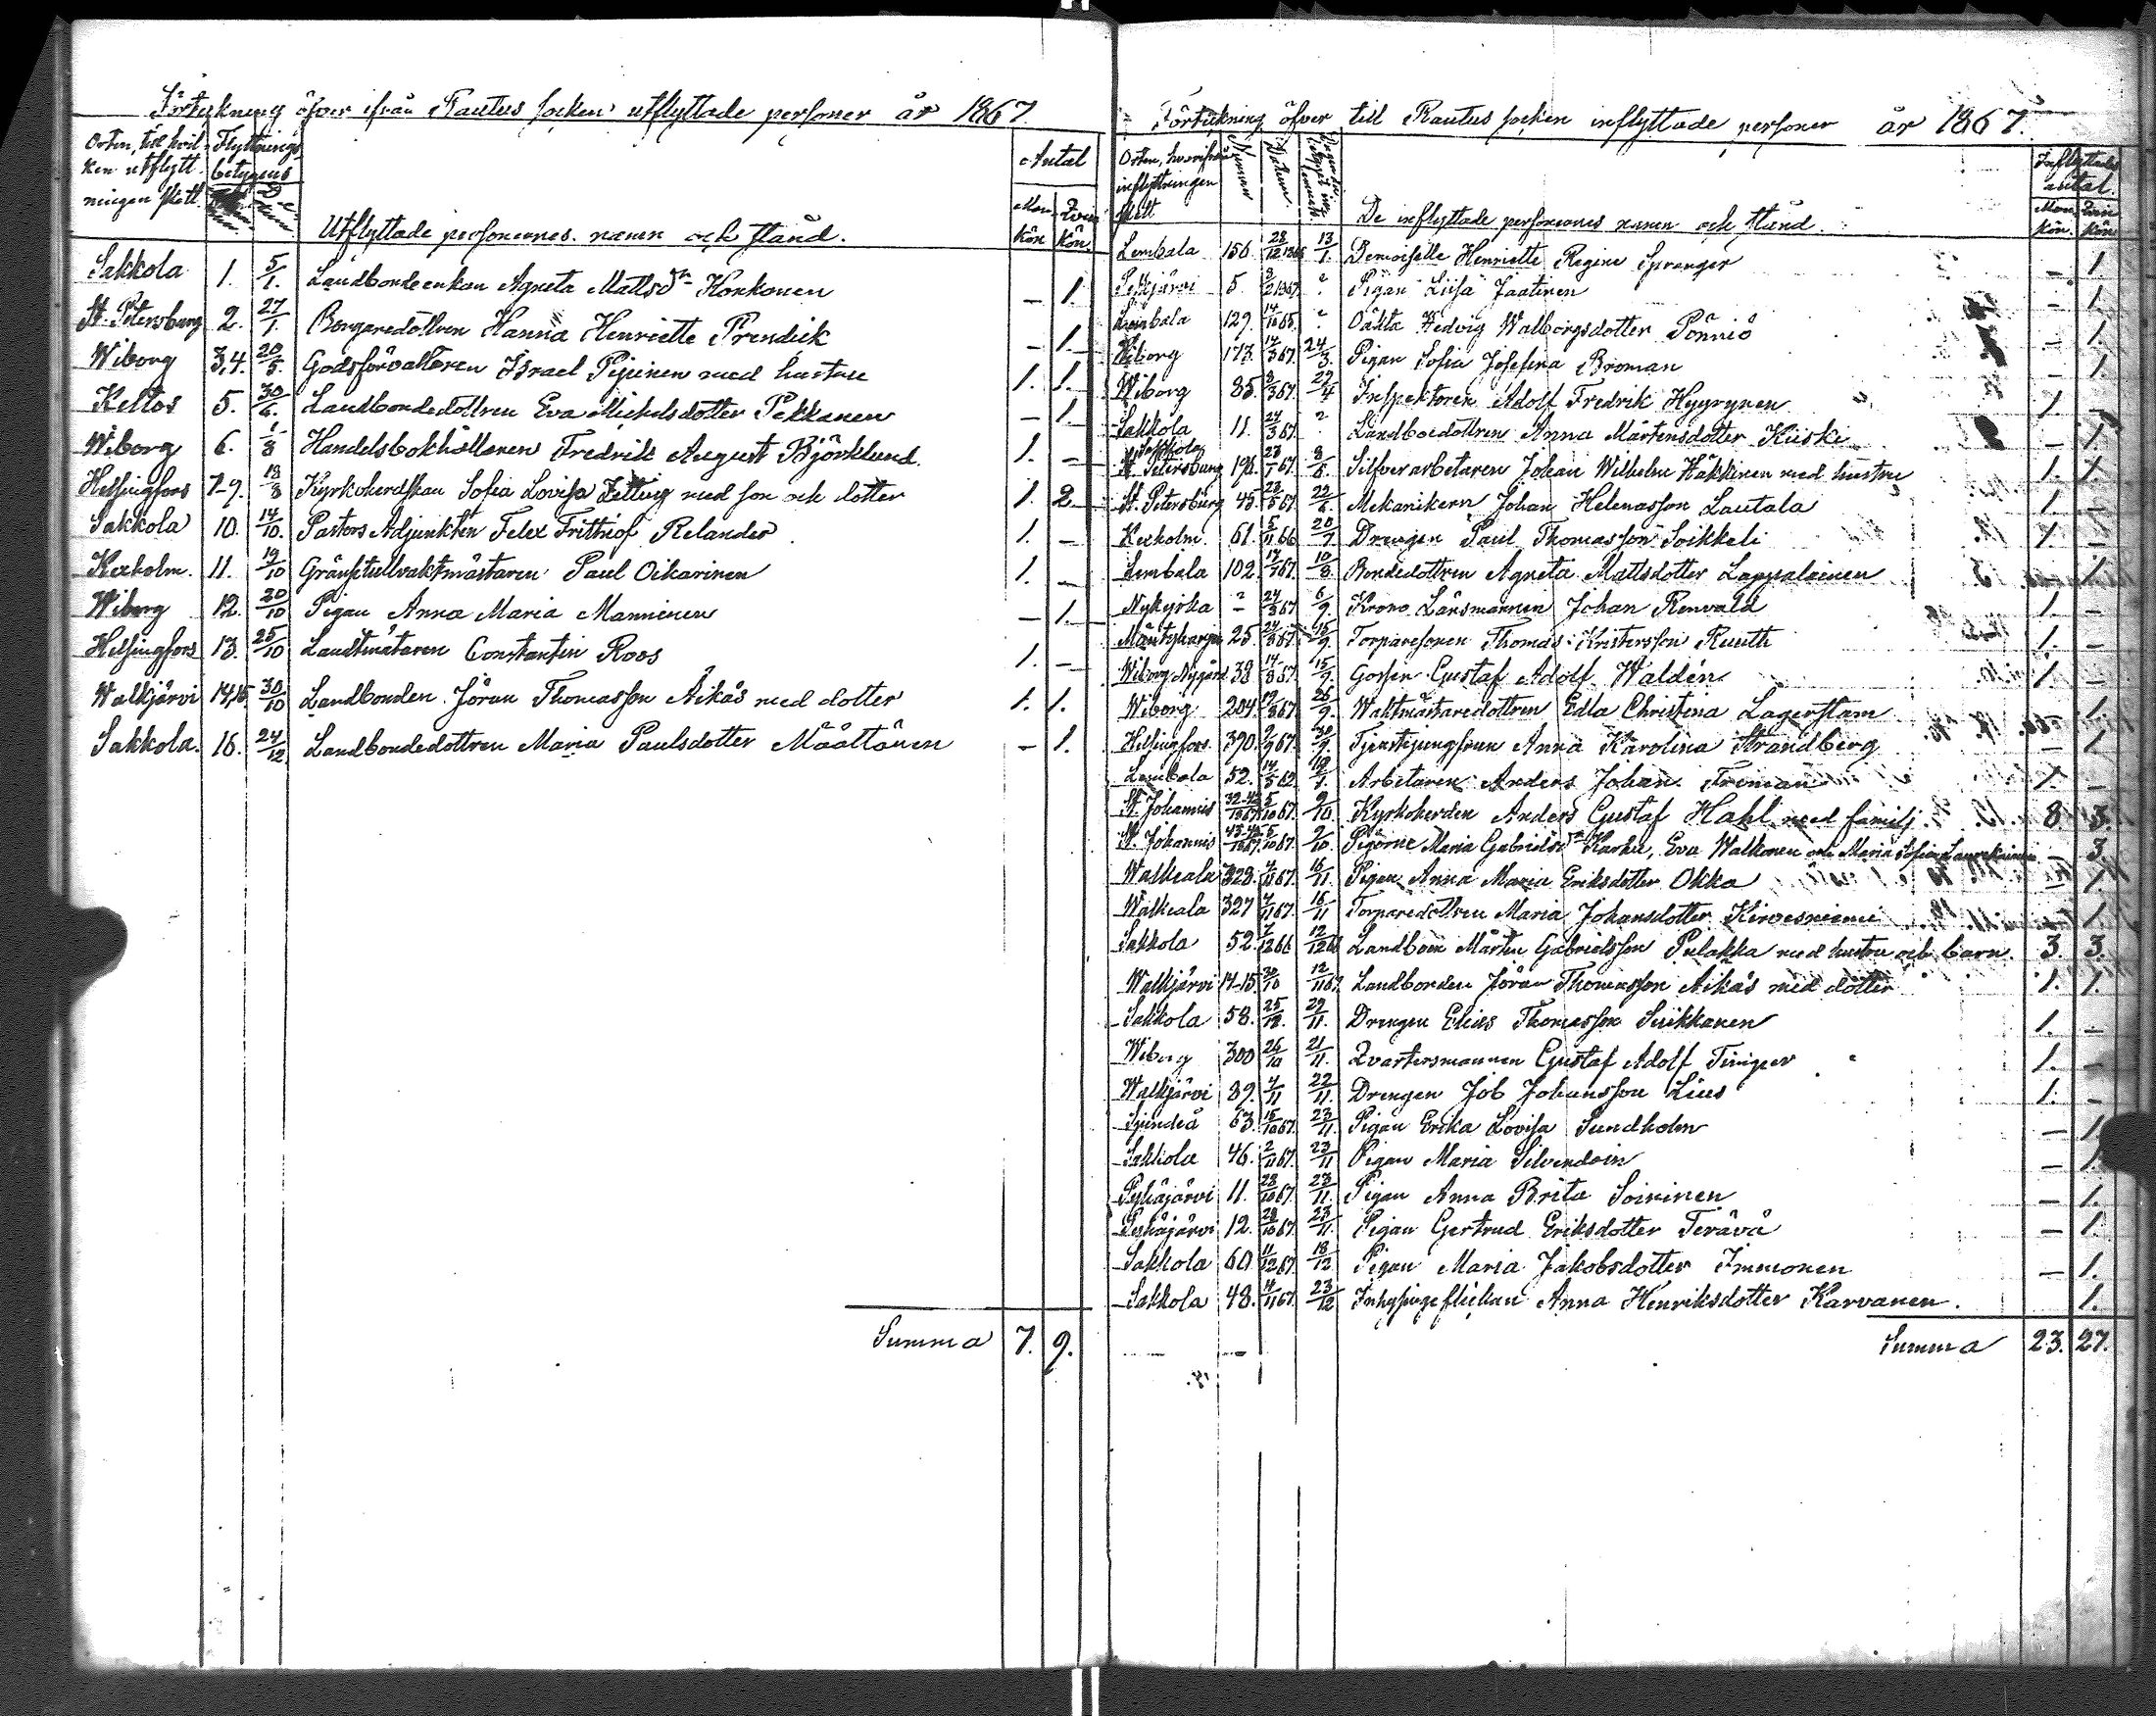 Förteckning öfver ifrån Rautus socken utflyttade personer år 1867.
Orten, till hvil- Flyttnings Antal
ken utflytt- betygens
ningen skett. Man Qvin
Utflyttade personernes namn och stånd. kön kön
Sakkola 1. 5/1. Landbondeenkan Agneta Mattsdr Konkonen – 1.
St. Petersburg 2. 27/1. Borgaredottren Hanna Henriette Frendick – 1.
Wiborg 3,4. 20/5. Godsförvaltaren Israel Pijinen med hustru 1. 1.
Keltos 5. 30/6. Landbondedottren Eva Michelsdotter Pekkanen – 1.
Wiborg 6. 1/8 Handelsbokhållaren Fredrik August Björklund. 1. –
Helsingfors 7-9. 18/8 Kyrkoherdskan Sofia Lovisa med son och dotter 1. 2.
Sakkola 10. 14/10. Pastors Adjunkten Felex Frithiof Relander 1. –
Kexholm. 11. 19/10 Gränstullvaktmästaren Paul Oikarinen 1. –
Wiborg 12. 20/10 Pigan Anna Maria Manninen – 1.
Helsingfors 13. 25/10 Landtmätaren Constantin Roos 1. –
Walkjärvi 14,15 30/10 Landbonden Jöran Thomasson Äikäs med dotter 1. 1.
Sakkola. 16. 24/12 Landbondedottren Maria Paulsdotter Määttänen – 1.
Summa 7. 9.
Förteckning öfver till Rautus socken inflyttade personer år 1867.
Orten, hvarifrån Nummer Datum Inflyttades
inflyttningen antal.
skett De inflyttade personernes namn och stånd. Man kön. Qvin kön
Lembala 156. 28/12 1866 13/1. Demoiselle Henriette Regine Sprenger – 1.
5. 8/2 1867. ? Pigan Liisa Jaatinen – 1.
Lembala 129. 14/10 65. ? Oäkta Hedvig Walborgsdotter Pönniö – 1.
Wiborg 173. 14/3 67. 24/3. Pigan Sofia Josefina Broman – 1.
Wiborg 85. 8/3 67. 29/4 Inspektoren Adolf Fredrik Hyyrynen 1 –
Sakkola 11. 24/3 67. ? Landboedottren Anna Mårtensdotter Kiiski – 1.
St. Petersburg 196. 28/1 67. 8/5. Silfverarbetaren Johan Wilhelm Häkkinen med hustru 1. 1.
St. Petersburg 45. 23/5 67. 22/6. Mekanikern Johan Helenasson Lautala 1 –
Kexholm. 61. 5/11 66 20/7 Drengen Paul Thomasson Soikkeli 1. –
Lembala 102. 17/7 67. 10/8. Bondedottren Agneta Mattsdotter Lappalainen – 1.
Nykyrka ? 24/8 67 6/9. Krono Länsmannen Johan Renvald 1. –
Mäntyharju 25. 24/8 67. 15/9. Torparesonen Thomas Kristersson Ruuth 1. –
Wiborg Nygård 38 14/8 67. 15/9. Gossen Gustaf Adolf Waldén 1. –
Wiborg 204. 19/8 67. 26/9. Waktmästaredottren Edla Christina Lagerstam – 1.
Helsingfors 390. 2/9 67. 30/9. Tjenstejungfrun Anna Karolina Strandberg – 1
Lembala 52. 14/5 62. Arbetaren Anders Johan Freman 1. –
St. Johannis 5/10 67. 9/10. Kyrkoherden Anders Gustaf Hahl med familj 8. 3.
St. Johannis 5/10 67. 9/10. Pigorne Maria Gabrielsdr Karhu, Eva Walkonen och Maria Sofia – 3.
Walkeala 328. 4/11 67. 16/11. Pigan Anna Maria Eriksdotter Okka – 1.
Walkeala 327 4/11 67. 16/11 Torparedottren Maria Johansdotter Kirvesniemi – 1.
Sakkola 52. 7/12 66 12/12 66 Landboen Mårten Gabrielsson Pulakka med hustru och barn. 3. 3.
Walkjärvi 14-15. 30/10 12/11 67. Landbonden Jöran Thomasson Äikäs med dotter 1. 1.
Sakkola 58. 25/12. 29/11. Drengen Elias Thomasson Suikkanen 1. –
Wiborg 300 26/10 21/11. Qvartersmannen Gustaf Adolf Timper 1. –
Walkjärvi 89. 4/11 22/11. Drengen Job Johansson Lius 1. –
Sjundeå 63. 15/10 67. 23/11. Pigan Erika Lovisa Sundholm – 1.
Sakkola 46. 2/11 67. 23/11 Pigan Maria Silvendoin – 1.
Pyhäjärvi 11. 28/10 67. 23/11. Pigan Anna Brita Soininen – 1.
Pyhäjärvi 12. 28/10 67. 23/11. Pigan Gertrud Eriksdotter Terävä – 1.
Sakkola 60. 11/12 67. 18/12 Pigan Maria Jakobsdotter Immonen – 1.
Sakkola 48. 4/11 67. 23/12 Inhysingeflickan Anna Henriksdotter Karvanen. 1.
Summa 23. 27.